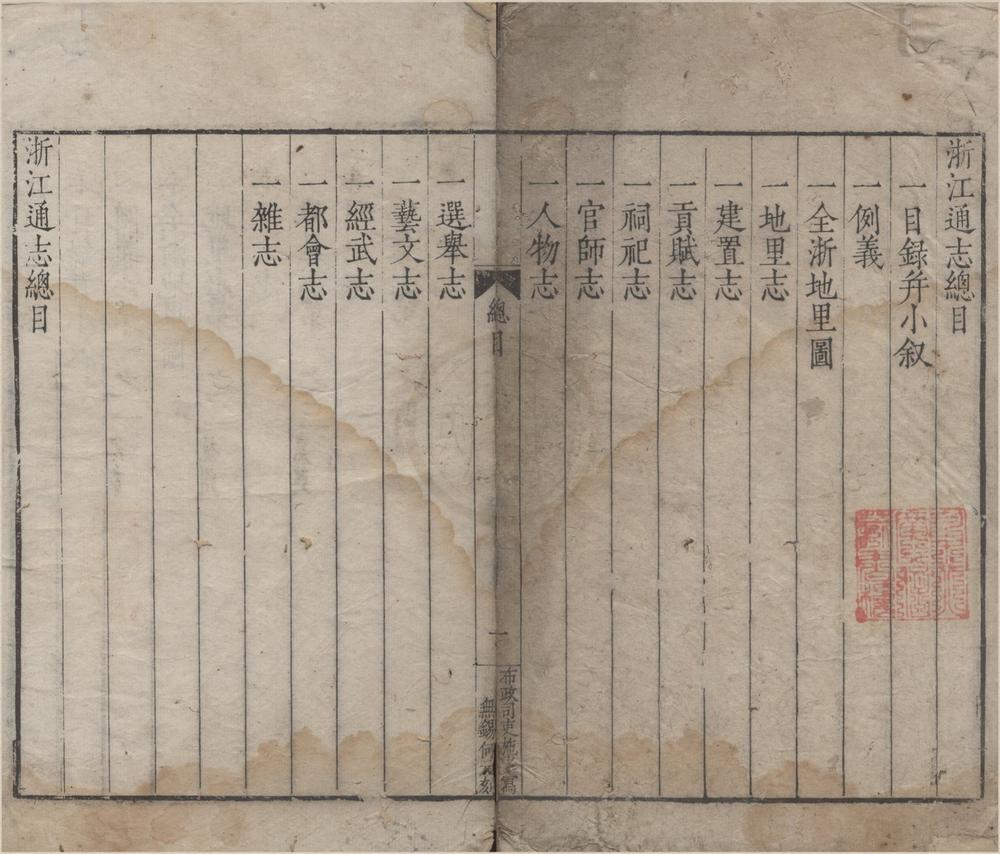 浙江通志總目
一目録并小叙
一例義
一全浙地里圖
一地里志
一建置志
一貢賦志
一祠祀志
一官師志
一人物志
總目
一
布政司吏施寫
無錫何刻
一選舉志
一藝文志
一經武志
一都會志
一雜志
浙江通志總目